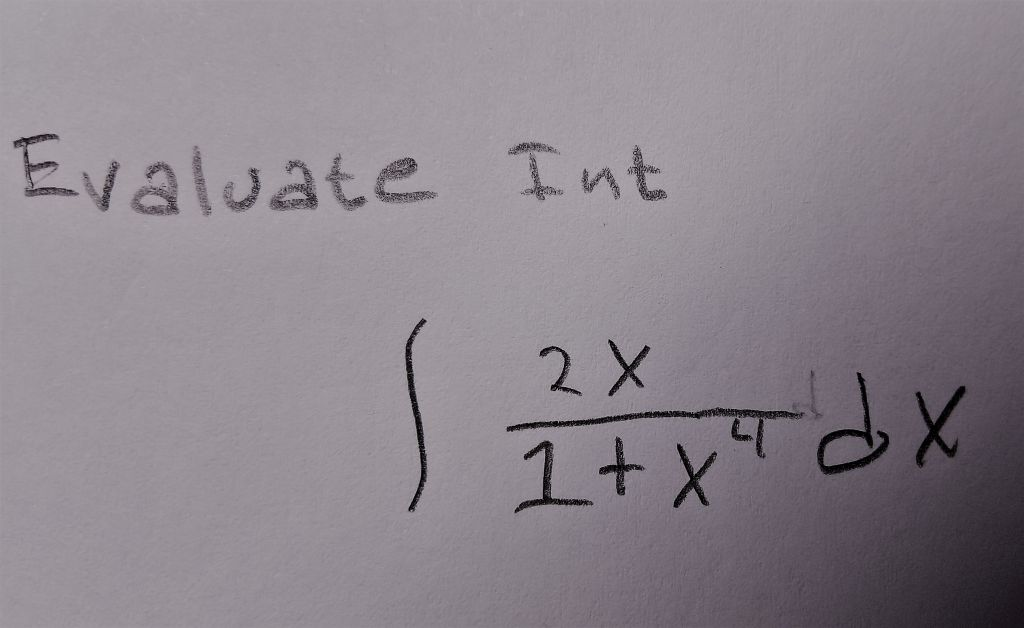 Evaluate Int
∫ 2x/(1+x⁴) dx